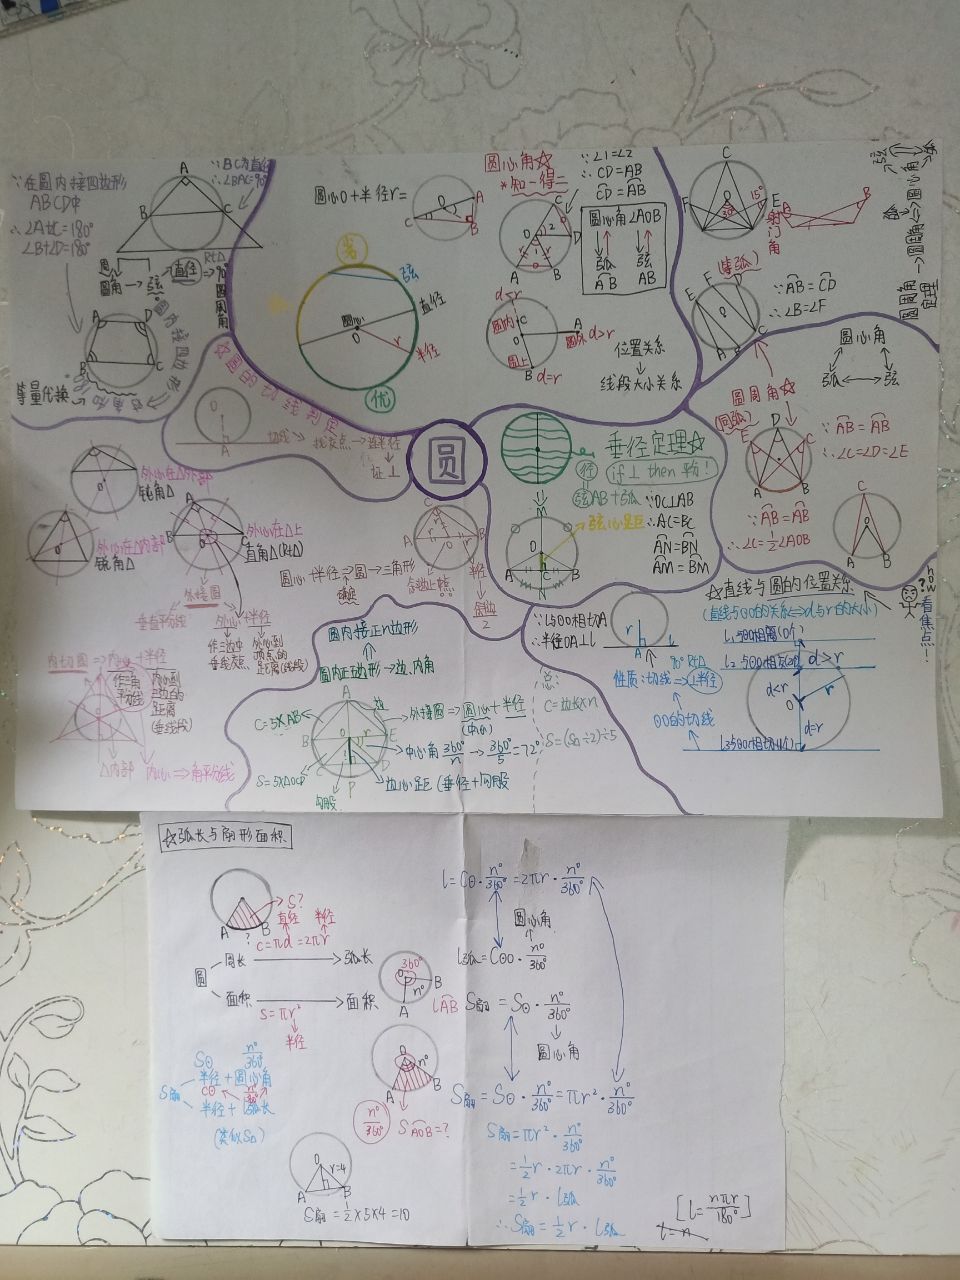 ∵在圆内接四边形
ABCD中
∴∠A+∠C=180°
∠B+∠D=180°
∵BC为直径
∴∠BAC=90°
A
B
C
圆周角→弦
直径
Rt△
90°圆周角
圆内接四边形
对角和
A
D
B
C
等量代换
圆心O+半径r=
A
O
C
B
劣
弦
直径
圆心
O
r
半径
优
圆心角☆
*知一得二
∵∠1=∠2
∴CD=AB
CD=AB
圆心角∠AOB
弧 弦
AB AB
C
D
O
2
1
A
B
d<r
圆内
C
O
A
圆外
d>r
圆上
B
d=r
位置关系
↓
线段大小关系
C
F
E
15°
30°
A
B
射门角
(等弧)
E
F
D
A
B
C
∵AB=CD
∴∠B=∠F
弦
弧
圆心角
圆周角→圆周角定理
圆心角
弧
弦
圆周角☆
(同弧)
D
E
C
A
B
∵AB=AB
∴∠C=∠D=∠E
∵AB=AB
∴∠C=½∠AOB
C
O
A
B
☆圆的切线判定
O
A
切线→找交点→连半径
↓
证⊥
圆
垂径定理☆
径
if⊥ then 平分!
弦AB+弧
∵OC⊥AB
∴AC=BC
AN=BN
AM=BM
弦心距
M
O
A
C
B
N
外心在△外部
钝角△
外心在△内部
锐角△
A
B
C
外心在△上
直角△(Rt△)
外接圆
垂直平分线
外心+半径
作三边中垂线交点
外心到顶点的距离(线段)
圆心+半径→圆→三角形
C
A
O
B
r
r
半径
斜边
2
内切圆→内心+半径
作三角平分线
内心到三边的距离
(垂线段)
△内部
内心→角平分线
圆内接正n边形
圆内正五边形→边,内角
C=5×AB
S=5×△OCD
勾股
A
B
E
C
D
P
r
边
外接圆→圆心+半径
(中心)
中心角360°/n→360°/5=72°
边心距(垂径+勾股
总:
C=边长×n
∵l与⊙O相切A
∴半径OA⊥l
r
A
l
90° Rt△
性质:切线→⊥半径
⊙O的切线
☆直线与圆的位置关系
(直线与⊙O的关系⇔d与r的大小)
how
?
看焦点!
l₁与⊙O相离(0个)
l₂与⊙O相交(2个)
d>r
d<r
r
O
d=r
l₃与⊙O相切(1个)
☆弧长与扇形面积
S?
A
B
?
直径 半径
C=πd=2πr
圆
周长→弧长
面积→面积
S=πr²
半径
360°
O
n°
A
B
lAB
O
n°
A
B
n°/360°
SAOB=?
S⊙ n°/360°
S扇
半径+圆心角
C⊙ n°/360°
半径+l弧长
(类似S△)
O
r=4
h
A
B
S扇=½×5×4=10
l=C⊙·n°/360°=2πr·n°/360°
圆心角
l弧=C⊙·n°/360°
S扇=S⊙·n°/360°
圆心角
S扇=S⊙·n°/360°=πr²·n°/360°
S扇=πr²·n°/360°
=½r·2πr·n°/360°
=½r·l弧
∴S扇=½r·l弧
[l=nπr/180°]